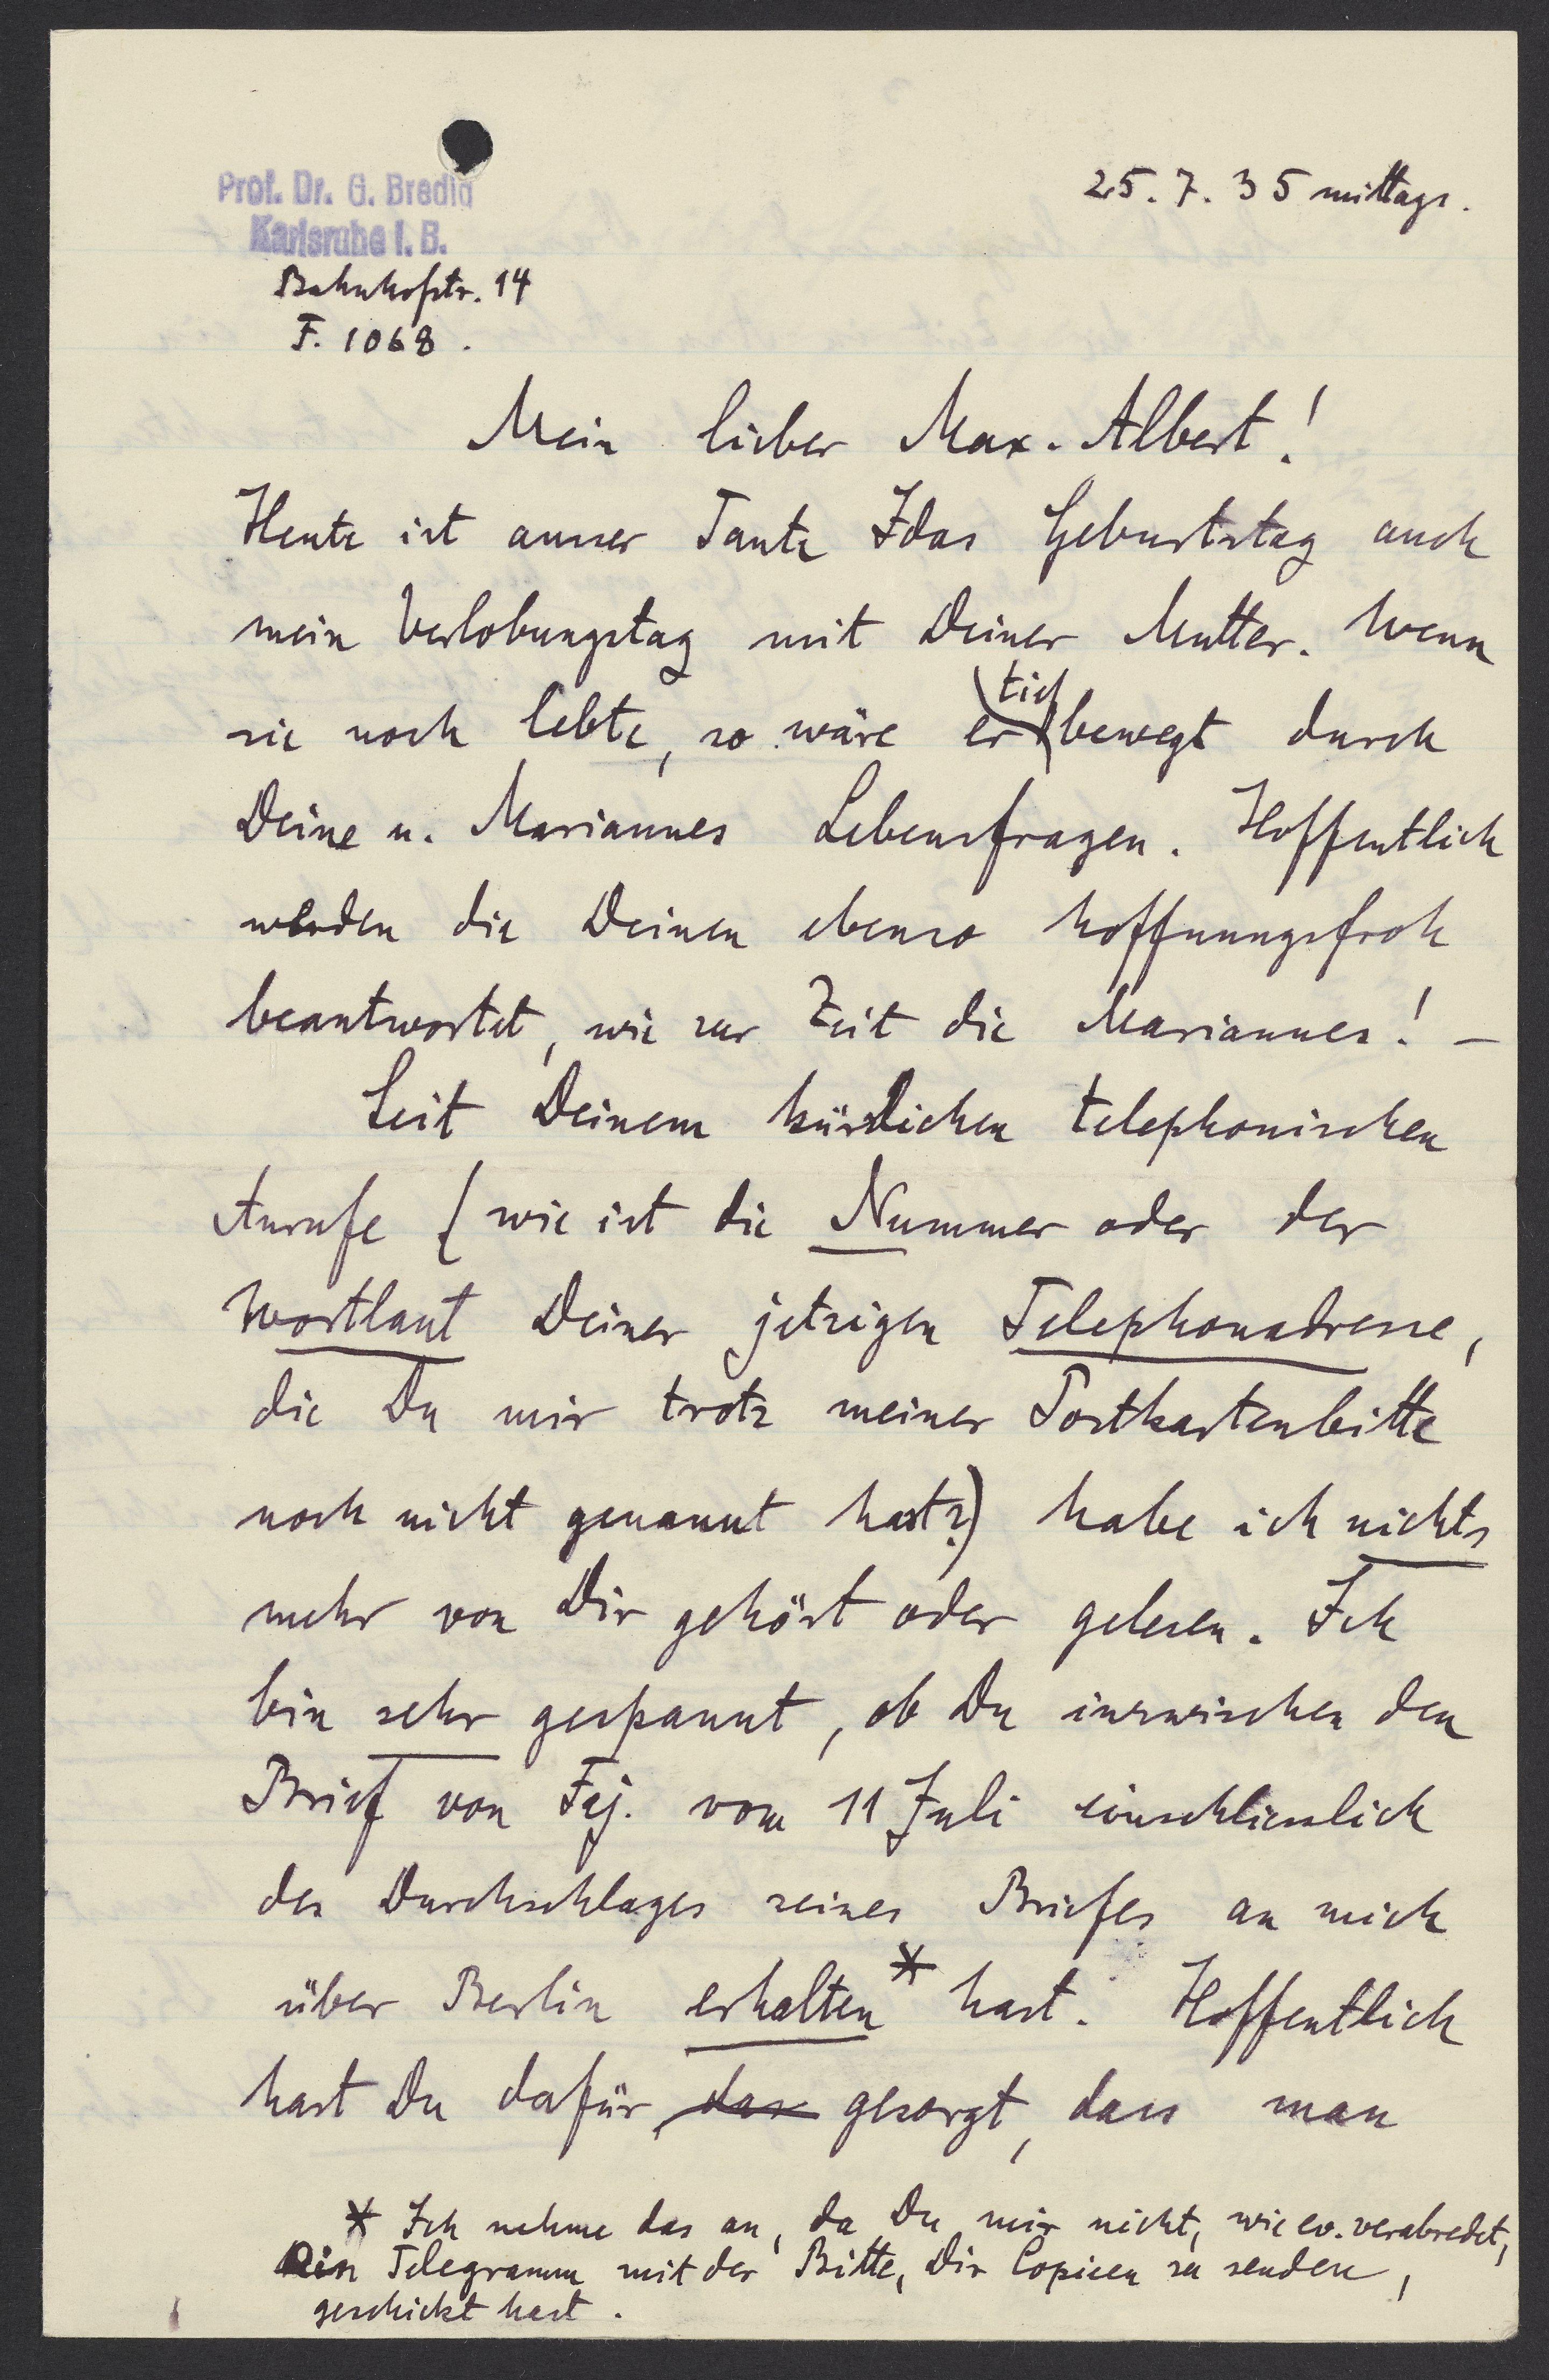 Prof. Dr. G. Bredig
Karlsruhe i. B.
Bahnhofstr. 14
F. 1068.
25. 7. 35 mittags.
Mein lieber Max-Albert!
Heute ist ausser Tante Idas Geburtstag auch
mein Verlobungstag mit Deiner Mutter. Wenn
sie noch lebte, so wäre er tief bewegt durch
Deine u. Mariannes Lebensfragen. Hoffentlich
werden die Deinen ebenso hoffnungsfroh
beantwortet, wie zur Zeit die Mariannes! –
Seit Deinem kürzlichen telephonischen
Anrufe (wie ist die Nummer oder der
Wortlaut Deiner jetzigen Telephonadresse,
die Du mir trotz meiner Postkartenbitte
noch nicht genannt hast?) habe ich nichts
mehr von Dir gehört oder gelesen. Ich
bin sehr gespannt, ob Du inzwischen den
Brief von Faj. vom 11 Juli einschliesslich
des Durchschlages seines Briefes an mich
über Berlin erhalten* hast. Hoffentlich
hast Du dafür, das gesorgt, dass man
* Ich nehme das an, da Du mir nicht, wie ev. verabredet,
ein Telegramm mit der Bitte, Dir Copieen zu senden,
geschickt hast.